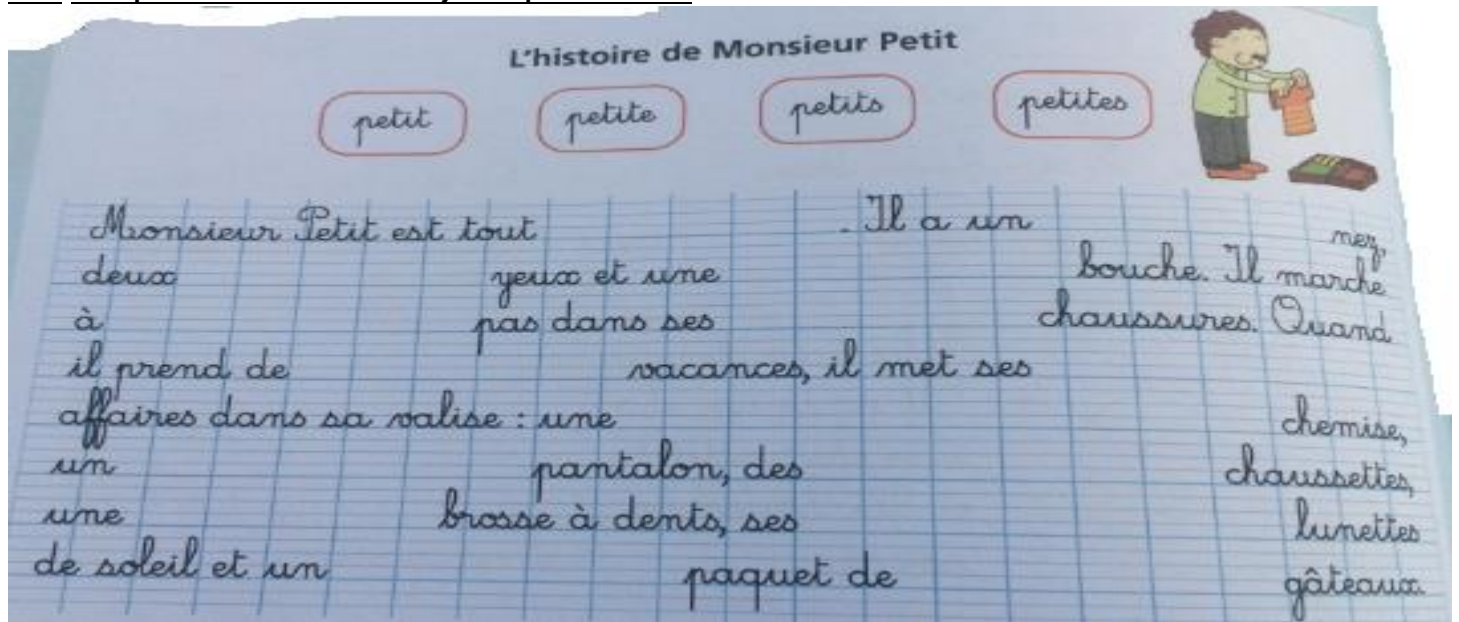 L'histoire de Monsieur Petit
petit petite petits petites
Monsieur Petit est tout . Il a un nez,
deux yeux et une bouche. Il marche
à pas dans ses chaussures. Quand
il prend de vacances, il met ses
affaires dans sa valise : une chemise,
un pantalon, des chaussettes,
une brosse à dents, ses lunettes
de soleil et un paquet de gâteaux.